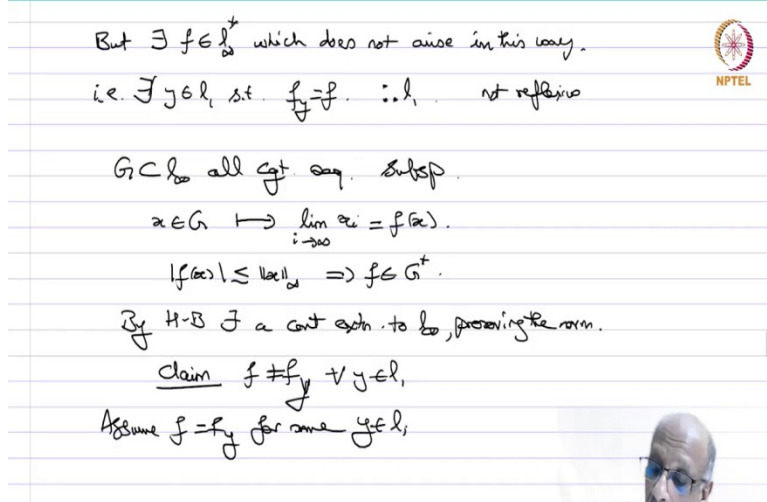 But ∃ f ∈ l∞* which does not arise in this way.
NPTEL
i.e. ∄ y ∈ l₁ s.t. f_y = f. ∴ l₁ not reflexive
G ⊂ l∞ all cgt. seq. subsp.
x ∈ G ↦ lim_{i→∞} x_i = f(x).
|f(x)| ≤ ‖x‖∞ ⇒ f ∈ G*.
By H-B ∃ a cont extn. to l∞, preserving the norm.
Claim f ≠ f_y ∀ y ∈ l₁
Assume f = f_y for some y ∈ l₁